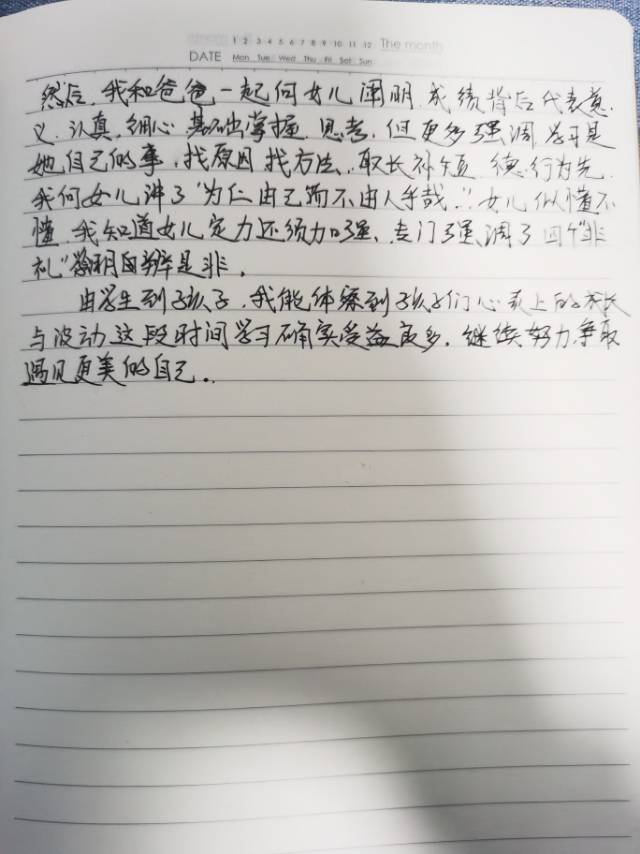 1 2 3 4 5 6 7 8 9 10 11 12 The month
DATE Mon Tue Wed Thu Fri Sat Sun
然后，我和爸爸一起向女儿阐明，成绩背后代表意
义，认真，细心 基础掌握，思考，但更多强调 学习是
她自己的事，找原因 找方法，取长补短 德行为先
我向女儿讲了"为仁由己而不由人乎哉"女儿似懂不
懂，我知道女儿定力还须加强、专门强调了四个"非
礼" 明白辨是非。
由学生到孩子，我能体察到孩子们心灵上的成长
与波动，这段时间学习确实受益良多，继续努力，争取
遇见更美的自己。